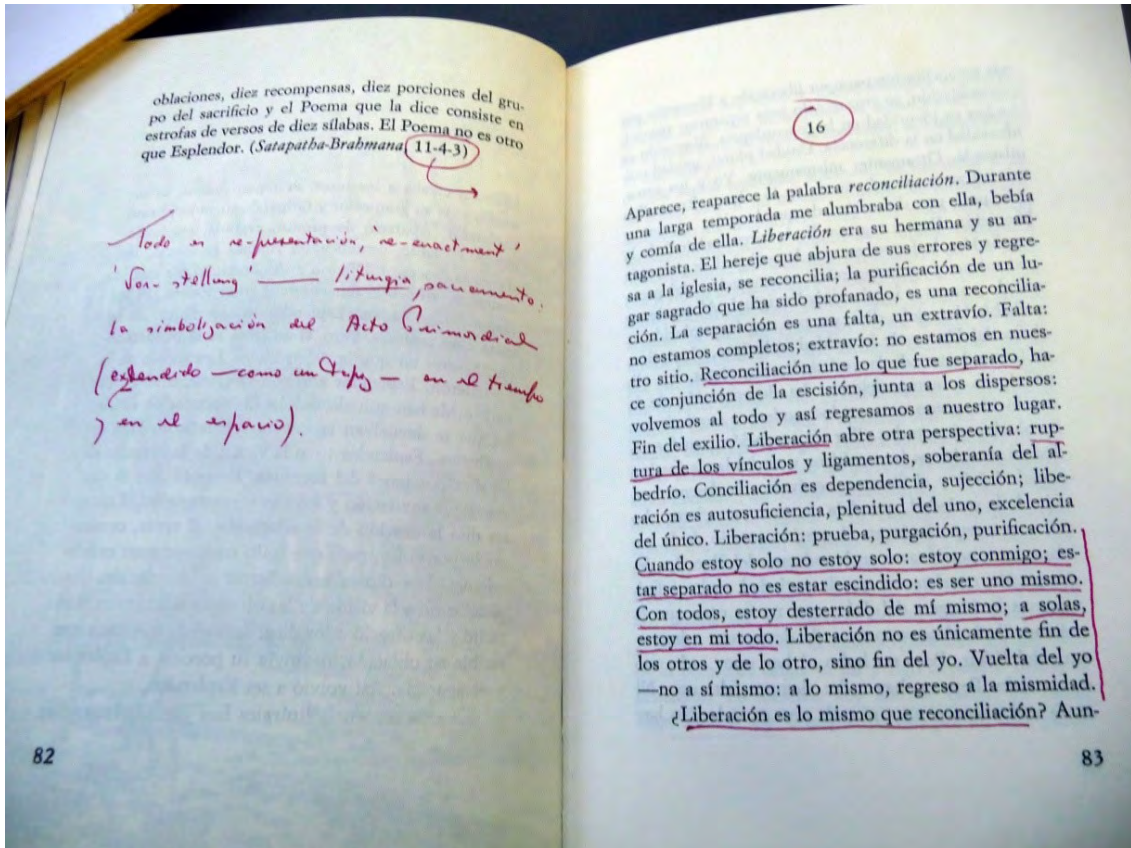 oblaciones, diez recompensas, diez porciones del gru-
po del sacrificio y el Poema que la dice consiste en
estrofas de versos de diez sílabas. El Poema no es otro
que Esplendor. (Satapatha-Brahmana 11-4-3)
Todo es re-presentación, 're-enactment'
'Vor-stellung' — liturgia, sacramento.
La simbolización del Acto Primordial
(extendido —como un — en el tiempo
y en el espacio).
82
16
Aparece, reaparece la palabra reconciliación. Durante
una larga temporada me alumbraba con ella, bebía
y comía de ella. Liberación era su hermana y su an-
tagonista. El hereje que abjura de sus errores y regre-
sa a la iglesia, se reconcilia; la purificación de un lu-
gar sagrado que ha sido profanado, es una reconcilia-
ción. La separación es una falta, un extravío. Falta:
no estamos completos; extravío: no estamos en nues-
tro sitio. Reconciliación une lo que fue separado, ha-
ce conjunción de la escisión, junta a los dispersos:
volvemos al todo y así regresamos a nuestro lugar.
Fin del exilio. Liberación abre otra perspectiva: rup-
tura de los vínculos y ligamentos, soberanía del al-
bedrío. Conciliación es dependencia, sujección; libe-
ración es autosuficiencia, plenitud del uno, excelencia
del único. Liberación: prueba, purgación, purificación.
Cuando estoy solo no estoy solo: estoy conmigo; es-
tar separado no es estar escindido: es ser uno mismo.
Con todos, estoy desterrado de mí mismo; a solas,
estoy en mi todo. Liberación no es únicamente fin de
los otros y de lo otro, sino fin del yo. Vuelta del yo
—no a sí mismo: a lo mismo, regreso a la mismidad.
¿Liberación es lo mismo que reconciliación? Aun-
83